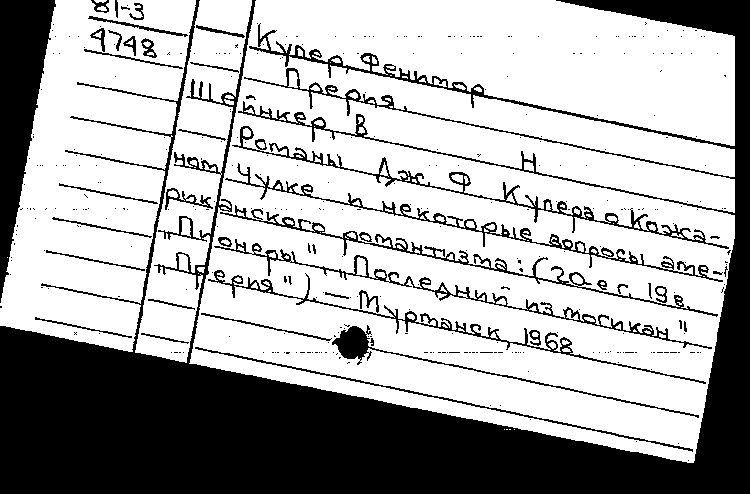 81-3
4748
Купер, Фенимор
Прерия.
Шейнкер, В
Н
Романы Дж. Ф Купера о Кожа-
ном Чулке и некоторые вопросы аме-
риканского романтизма: (20-е г. 19 в.
„Пионеры", „Последний из могикан",
„Прерия"). — Мурманск, 1968